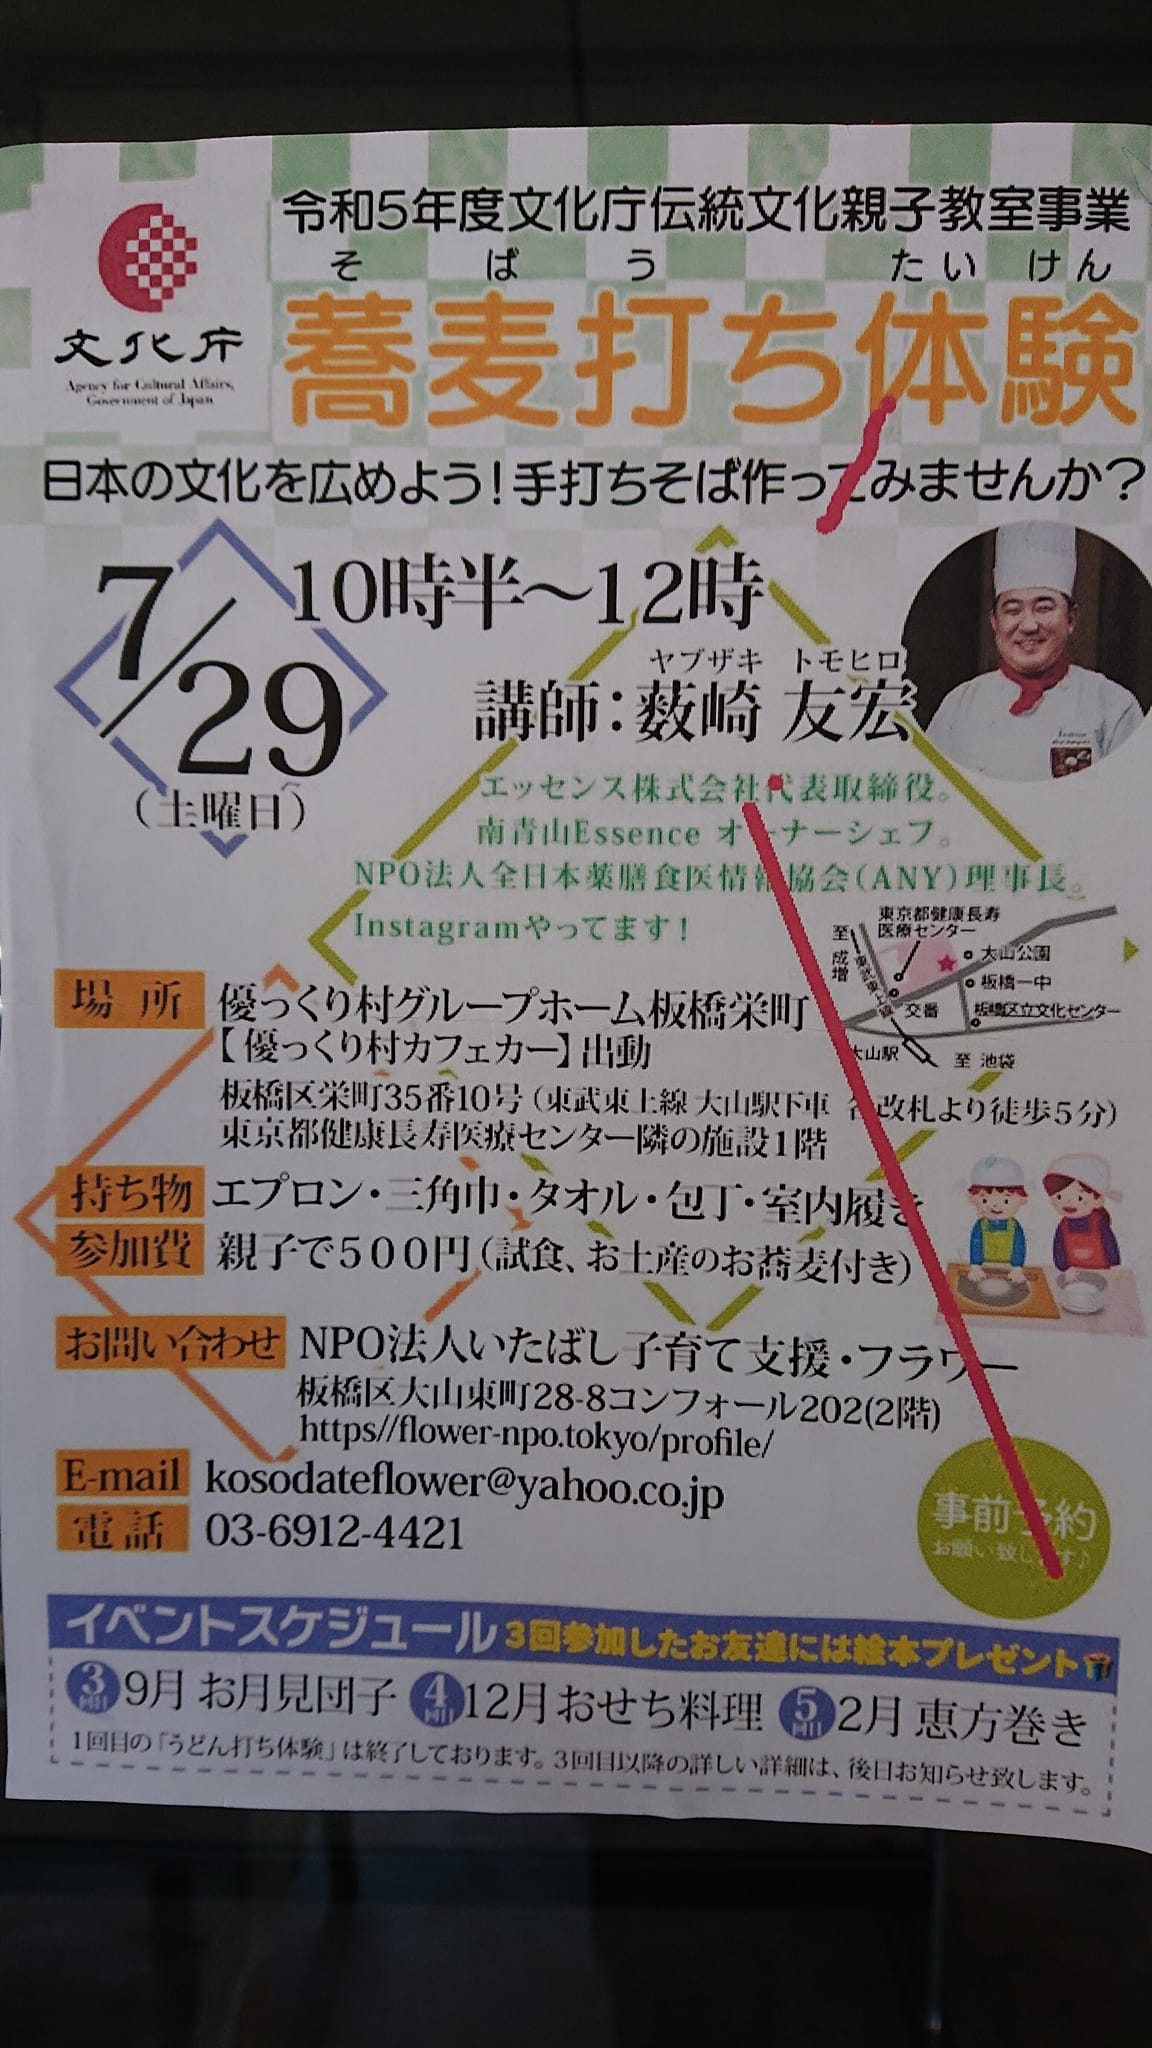 令和5年度文化庁伝統文化親子教室事業
そ ば う たい けん
蕎麦打ち体験
文化庁
Agency for Cultural Affairs,
Government of Japan
日本の文化を広めよう!手打ちそば作ってみませんか?
7/29
(土曜日)
10時半～12時
ヤブザキ トモヒロ
講師:薮崎 友宏
エッセンス株式会社代表取締役。
南青山Essence オーナーシェフ。
NPO法人全日本薬膳食医情報協会(ANY)理事長。
Instagramやってます!
東京都健康長寿
医療センター
至成増
東武東上線
大山公園
板橋一中
交番
板橋区立文化センター
大山駅
至 池袋
場所 優っくり村グループホーム板橋栄町
【優っくり村カフェカー】出動
板橋区栄町35番10号(東武東上線 大山駅下車 改札より徒歩5分)
東京都健康長寿医療センター隣の施設1階
持ち物 エプロン・三角巾・タオル・包丁・室内履き
参加費 親子で500円(試食、お土産のお蕎麦付き)
お問い合わせ NPO法人いたばし子育て支援・フラワー
板橋区大山東町28-8コンフォール202(2階)
https//flower-npo.tokyo/profile/
E-mail kosodateflower@yahoo.co.jp
電話 03-6912-4421
事前予約
お願い致します♪
イベントスケジュール 3回参加したお友達には絵本プレゼント
3回目 9月 お月見団子 4回目 12月 おせち料理 5回目 2月 恵方巻き
1回目の「うどん打ち体験」は終了しております。3回目以降の詳しい詳細は、後日お知らせ致します。